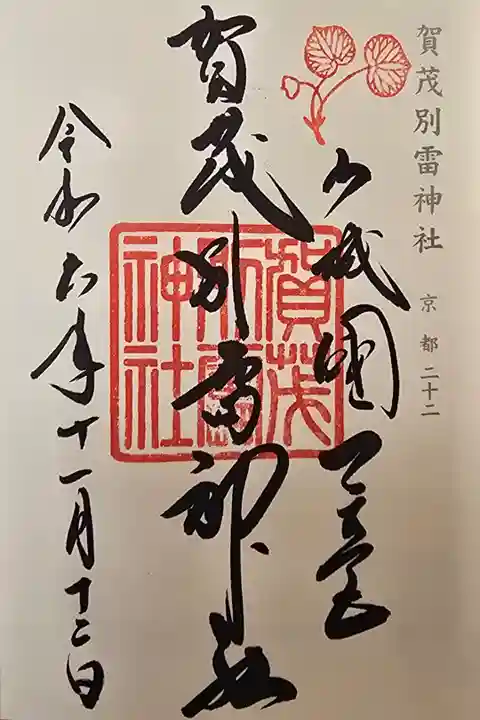 賀茂別雷神社 京都二十二
山城國一之宮
賀茂別雷神社
賀茂別雷神社
令和六年十一月十二日